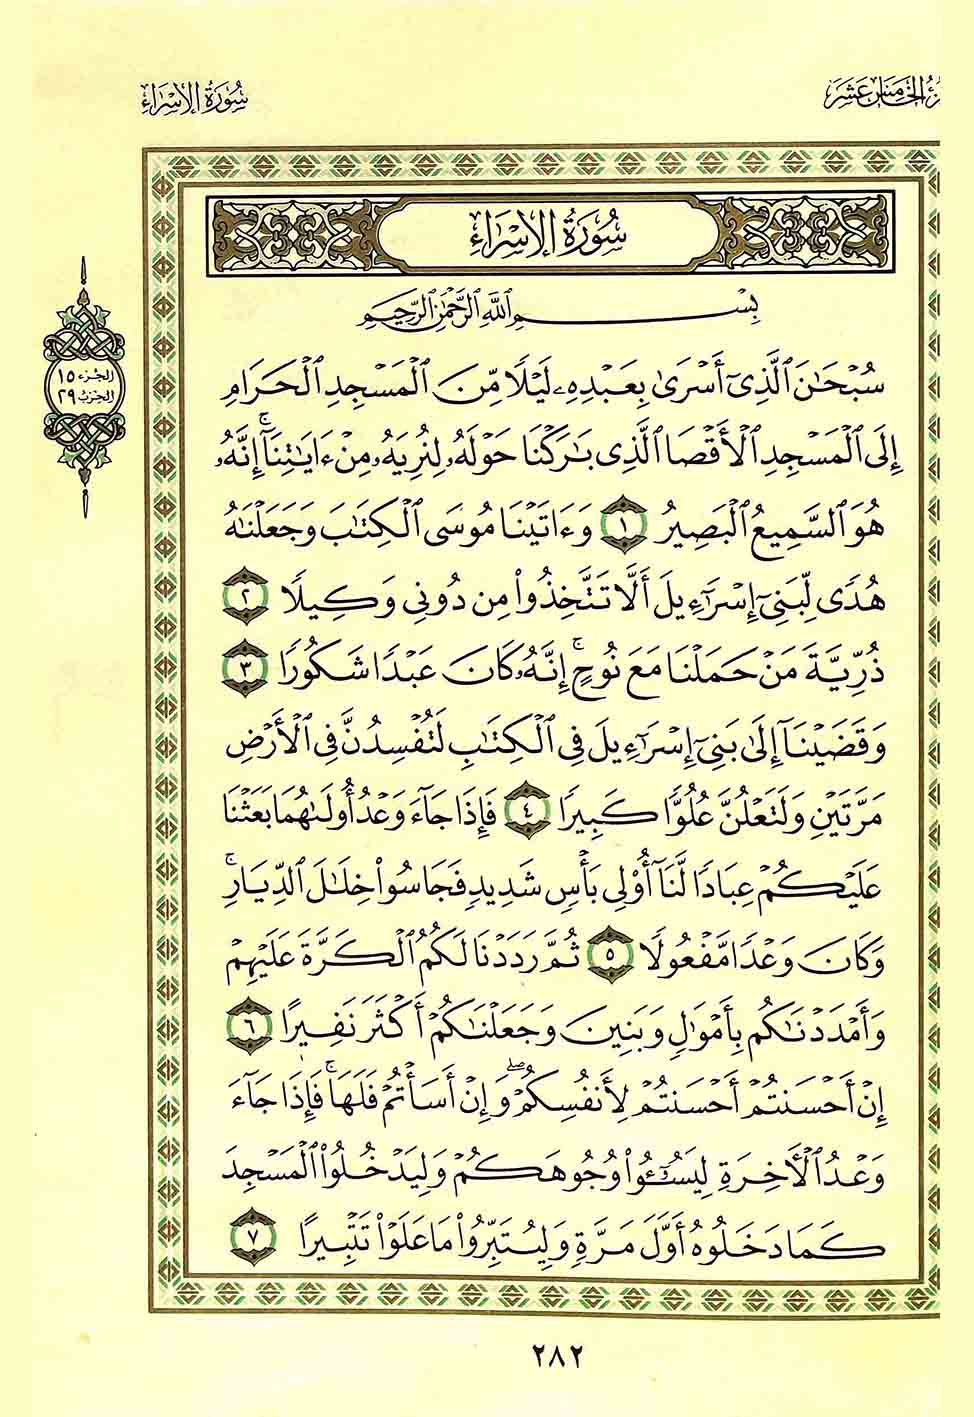 الجزء الخامس عشر
سُورَةُ الإِسْرَاءِ
سُورَةُ الإِسْرَاءِ
بِسْمِ ٱللَّهِ ٱلرَّحْمَٰنِ ٱلرَّحِيمِ
سُبْحَٰنَ ٱلَّذِىٓ أَسْرَىٰ بِعَبْدِهِۦ لَيْلًا مِّنَ ٱلْمَسْجِدِ ٱلْحَرَامِ
إِلَى ٱلْمَسْجِدِ ٱلْأَقْصَا ٱلَّذِى بَٰرَكْنَا حَوْلَهُۥ لِنُرِيَهُۥ مِنْ ءَايَٰتِنَآ ۚ إِنَّهُۥ
هُوَ ٱلسَّمِيعُ ٱلْبَصِيرُ ١ وَءَاتَيْنَا مُوسَى ٱلْكِتَٰبَ وَجَعَلْنَٰهُ
هُدًى لِّبَنِىٓ إِسْرَٰٓءِيلَ أَلَّا تَتَّخِذُوا۟ مِن دُونِى وَكِيلًا ٢
ذُرِّيَّةَ مَنْ حَمَلْنَا مَعَ نُوحٍ ۚ إِنَّهُۥ كَانَ عَبْدًا شَكُورًا ٣
وَقَضَيْنَآ إِلَىٰ بَنِىٓ إِسْرَٰٓءِيلَ فِى ٱلْكِتَٰبِ لَتُفْسِدُنَّ فِى ٱلْأَرْضِ
مَرَّتَيْنِ وَلَتَعْلُنَّ عُلُوًّا كَبِيرًا ٤ فَإِذَا جَآءَ وَعْدُ أُولَىٰهُمَا بَعَثْنَا
عَلَيْكُمْ عِبَادًا لَّنَآ أُو۟لِى بَأْسٍ شَدِيدٍ فَجَاسُوا۟ خِلَٰلَ ٱلدِّيَارِ ۚ
وَكَانَ وَعْدًا مَّفْعُولًا ٥ ثُمَّ رَدَدْنَا لَكُمُ ٱلْكَرَّةَ عَلَيْهِمْ
وَأَمْدَدْنَٰكُم بِأَمْوَٰلٍ وَبَنِينَ وَجَعَلْنَٰكُمْ أَكْثَرَ نَفِيرًا ٦
إِنْ أَحْسَنتُمْ أَحْسَنتُمْ لِأَنفُسِكُمْ ۖ وَإِنْ أَسَأْتُمْ فَلَهَا ۚ فَإِذَا جَآءَ
وَعْدُ ٱلْءَاخِرَةِ لِيَسُۥٓـُٔوا۟ وُجُوهَكُمْ وَلِيَدْخُلُوا۟ ٱلْمَسْجِدَ
كَمَا دَخَلُوهُ أَوَّلَ مَرَّةٍ وَلِيُتَبِّرُوا۟ مَا عَلَوْا۟ تَتْبِيرًا ٧
الجزء ١٥
الحزب ٢٩
٢٨٢